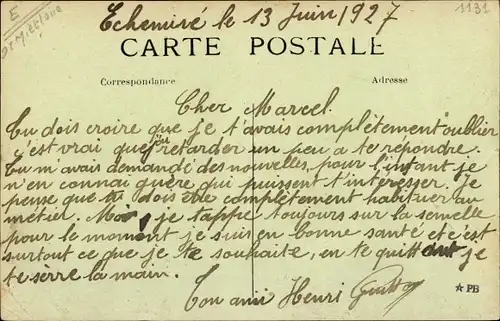 Echemiré le 13 Juin 1927
1131
E
CARTE POSTALE
Correspondance
Adresse
Cher Marcel.
Tu dois croire que je t'avais complètement oublier
c'est vrai que j'ai retarder un peu a te repondre.
Tu m'avais demandé des nouvelles, pour l'instant je
n'en connai guère qui puissent t'interesser. Je
pense que tu dois être complètement habituer au
métier. Moi je tappe toujours sur la semelle
pour le moment je suis en bonne santé et c'est
surtout ce que je te souhaite, en te quittant je
te serre la main.
Ton ami Henri
★ PB